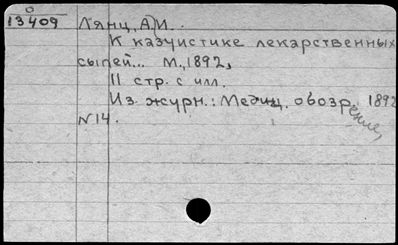 О
13409 Лянц, А.М.
К казуистике лекарственных
сыпей... М., 1892,
11 стр. с илл.
Из журн.: Медиц. обозрение, 1892
N14.